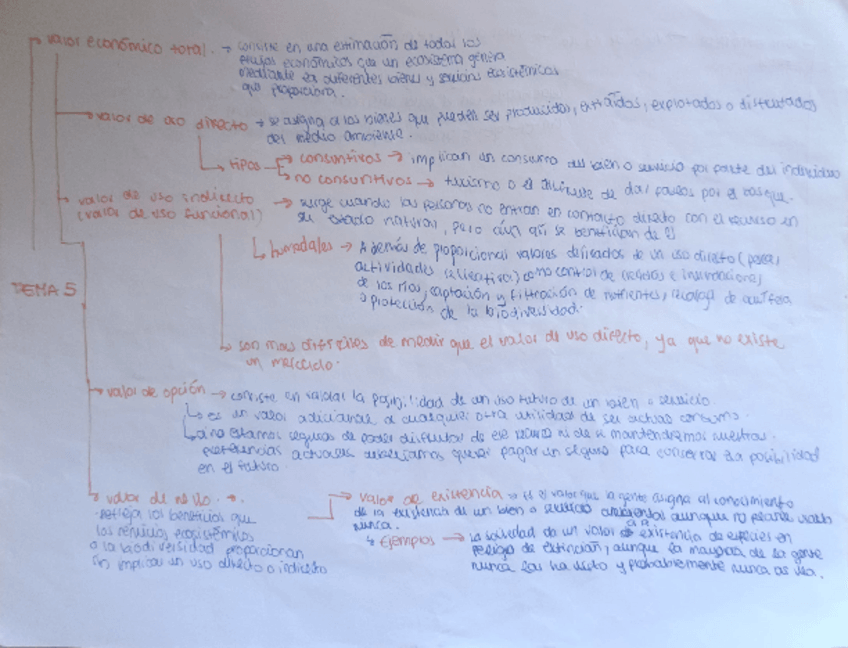 valor económico total. → consiste en una estimación de todos los
flujos económicos que un ecosistema genera
mediante los diferentes bienes y servicios ecosistémicos
que proporciona.
valor de uso directo → se asigna a los bienes que pueden ser producidos, extraídos, explotados o disfrutados
del medio ambiente.
tipos → consuntivos → implican un consumo del bien o servicio por parte del individuo
no consuntivos → turismo o el disfrute de dar paseos por el bosque.
valor de uso indirecto → surge cuando las personas no entran en contacto directo con el recurso en
(valor de uso funcional) su estado natural, pero aún así se benefician de él
humedales → Además de proporcional valores derivados de un uso directo (pesca,
actividades recreativas) como control de riadas e inundaciones
de los ríos, captación y filtración de nutrientes, recarga de acuíferos
o protección de la biodiversidad.
TEMA 5
son mas difíciles de medir que el valor de uso directo, ya que no existe
un mercado.
valor de opción → consiste en valorar la posibilidad de un uso futuro de un bien o servicio.
es un valor adicional a cualquier otra utilidad de su actual consumo.
si no estamos seguros de poder disfrutar de ese recurso ni de si mantendremos nuestras
preferencias actuales querer pagar un seguro para conservar esa posibilidad
en el futuro.
valor de no uso. →
refleja los beneficios que
los servicios ecosistémicos
o la biodiversidad proporcionan
sin implicar un uso directo o indirecto
valor de existencia → es el valor que la gente asigna al conocimiento
de la existencia de un bien o servicio ambiental aunque no
nunca.
Ejemplos → la sociedad da un valor a la existencia de especies en
peligro de extinción, aunque la mayoría de la gente
nunca las ha visto y probablemente nunca las vea.